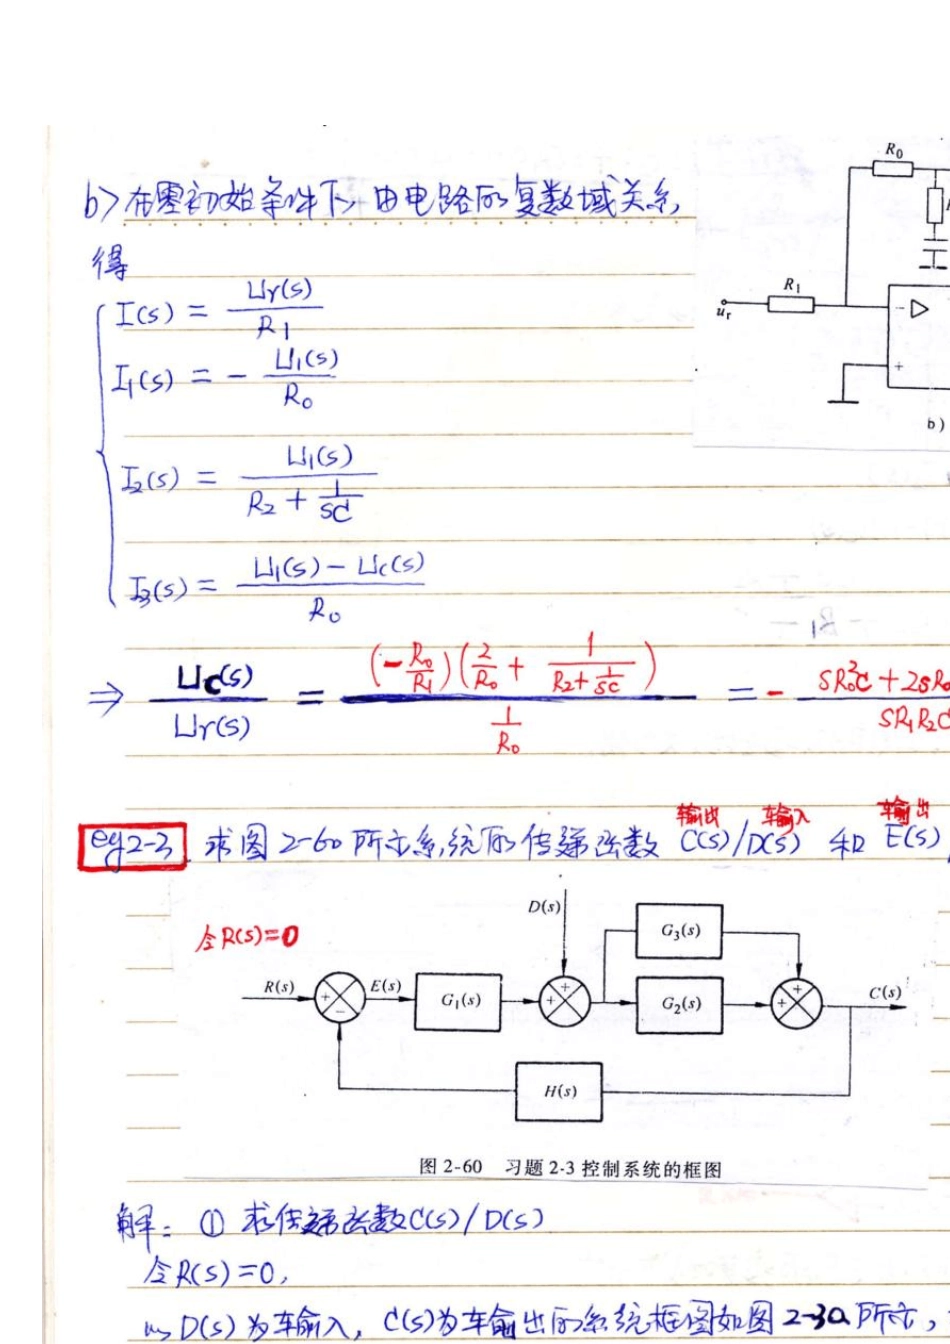 b>在零初始条件下，由电路的复数域关系，
得
I(s) = Ur(s) / R1
I1(s) = - U1(s) / R0
I2(s) = U1(s) / (R2 + 1/sC)
I3(s) = (U1(s) - Uc(s)) / R0
R0
R1
ur
▷
-
+
b)
⇒ Uc(s)/Ur(s) = (-R0/R1)(2/R0 + 1/(R2+1/sC)) / (1/R0) = -
输出 输入 输出
eg2-3 求图2-60所示系统的传递函数 C(s)/D(s) 和 E(s)
令R(s)=0
D(s)
G3(s)
R(s) E(s) G1(s) G2(s) C(s)
H(s)
图 2-60 习题 2-3 控制系统的框图
解：① 求传递函数C(s)/D(s)
令R(s)=0，
以D(s)为车输入，C(s)为车输出的系统框图如图2-3a所示，